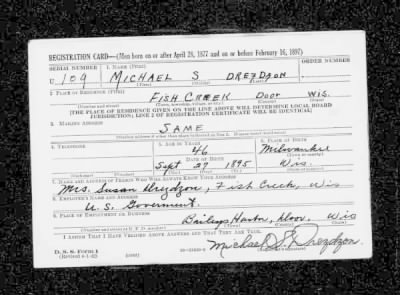 REGISTRATION CARD—(Men born on or after April 28, 1877 and on or before February 16, 1897)
SERIAL NUMBER 1. NAME (Print) ORDER NUMBER
U 109 MICHAEL S DREZDZON
(First) (Middle) (Last)
2. PLACE OF RESIDENCE (Print)
FISH CREEK DOOR WIS.
(Number and street) (Town, township, village, or city) (County) (State)
[THE PLACE OF RESIDENCE GIVEN ON THE LINE ABOVE WILL DETERMINE LOCAL BOARD
JURISDICTION; LINE 2 OF REGISTRATION CERTIFICATE WILL BE IDENTICAL]
3. MAILING ADDRESS
SAME
(Mailing address if other than place indicated on line 2. If same insert word same)
4. TELEPHONE 5. AGE IN YEARS 6. PLACE OF BIRTH
46 Milwaukee
DATE OF BIRTH (Town or county)
Sept 27 1895 Wis.
(Exchange) (Number) (Mo.) (Day) (Yr.) (State or country)
7. NAME AND ADDRESS OF PERSON WHO WILL ALWAYS KNOW YOUR ADDRESS
Mrs. Susan Drezdzon, Fish Creek, Wis
8. EMPLOYER'S NAME AND ADDRESS
U.S. Goverment.
9. PLACE OF EMPLOYMENT OR BUSINESS
Baileys Harbor, Door, Wis
(Number and street or R. F. D. number) (Town) (County) (State)
I AFFIRM THAT I HAVE VERIFIED ABOVE ANSWERS AND THAT THEY ARE TRUE.
D. S. S. Form 1
(Revised 4-1-42) (over) Michael S. Drezdzon